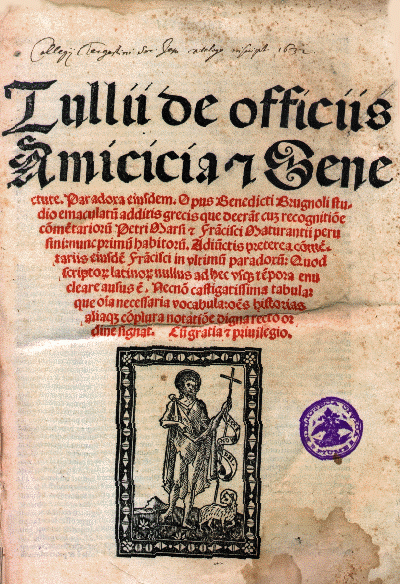 Collegij Tergestini Soc. Jesu catalogo inscript. 16
Tullii de officiis
Amicicia ⁊ Sene
ctute. Paradoxa eiusdem. Opus Benedicti Brugnoli stu
dio emaculatũ additis grecis que deerãt cuʒ recognitiõe
cõmẽtariorũ Petri Marsi ⁊ Frãcisci Maturantii peru
sini nunc primũ habitorũ. Adiũctis preterea cõmẽ
tariis eiusdẽ Frãcisci in vltimũ paradoxũ: Quod
scriptoꝝ latinoꝝ nullus ad hec vsqʒ tẽpora enu
cleare ausus ẽ. Necnõ castigatissima tabula:
que oĩa necessaria vocabula: oẽs historias
aliaqʒ cõplura notatiõe digna recto or
dine signat. Cũ gratia ⁊ priuilegio.